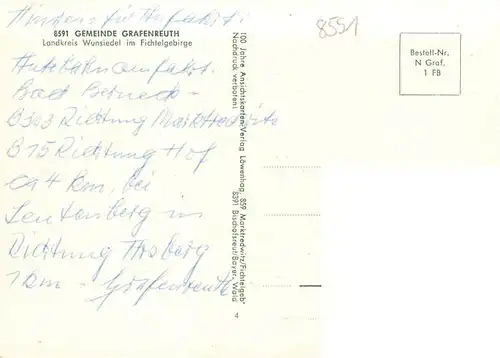 Hinweis für Anfahrt:
8591 GEMEINDE GRAFENREUTH
Landkreis Wunsiedel im Fichtelgebirge
Autobahnausfahrt
Bad Berneck -
B303 Richtung Marktredwitz
B15 Richtung Hof
ca 4 km, bei
Seußen
Richtung Arzberg
1 km - Grafenreuth
100 Jahre Ansichtskarten/Verlag Löwenhag, 859 Marktredwitz/Fichtelgeb.
Nachdruck verboten!
8391 Bischofsreut/Bayer. Wald
4
8551
Bestell-Nr.
N Graf.
1 FB